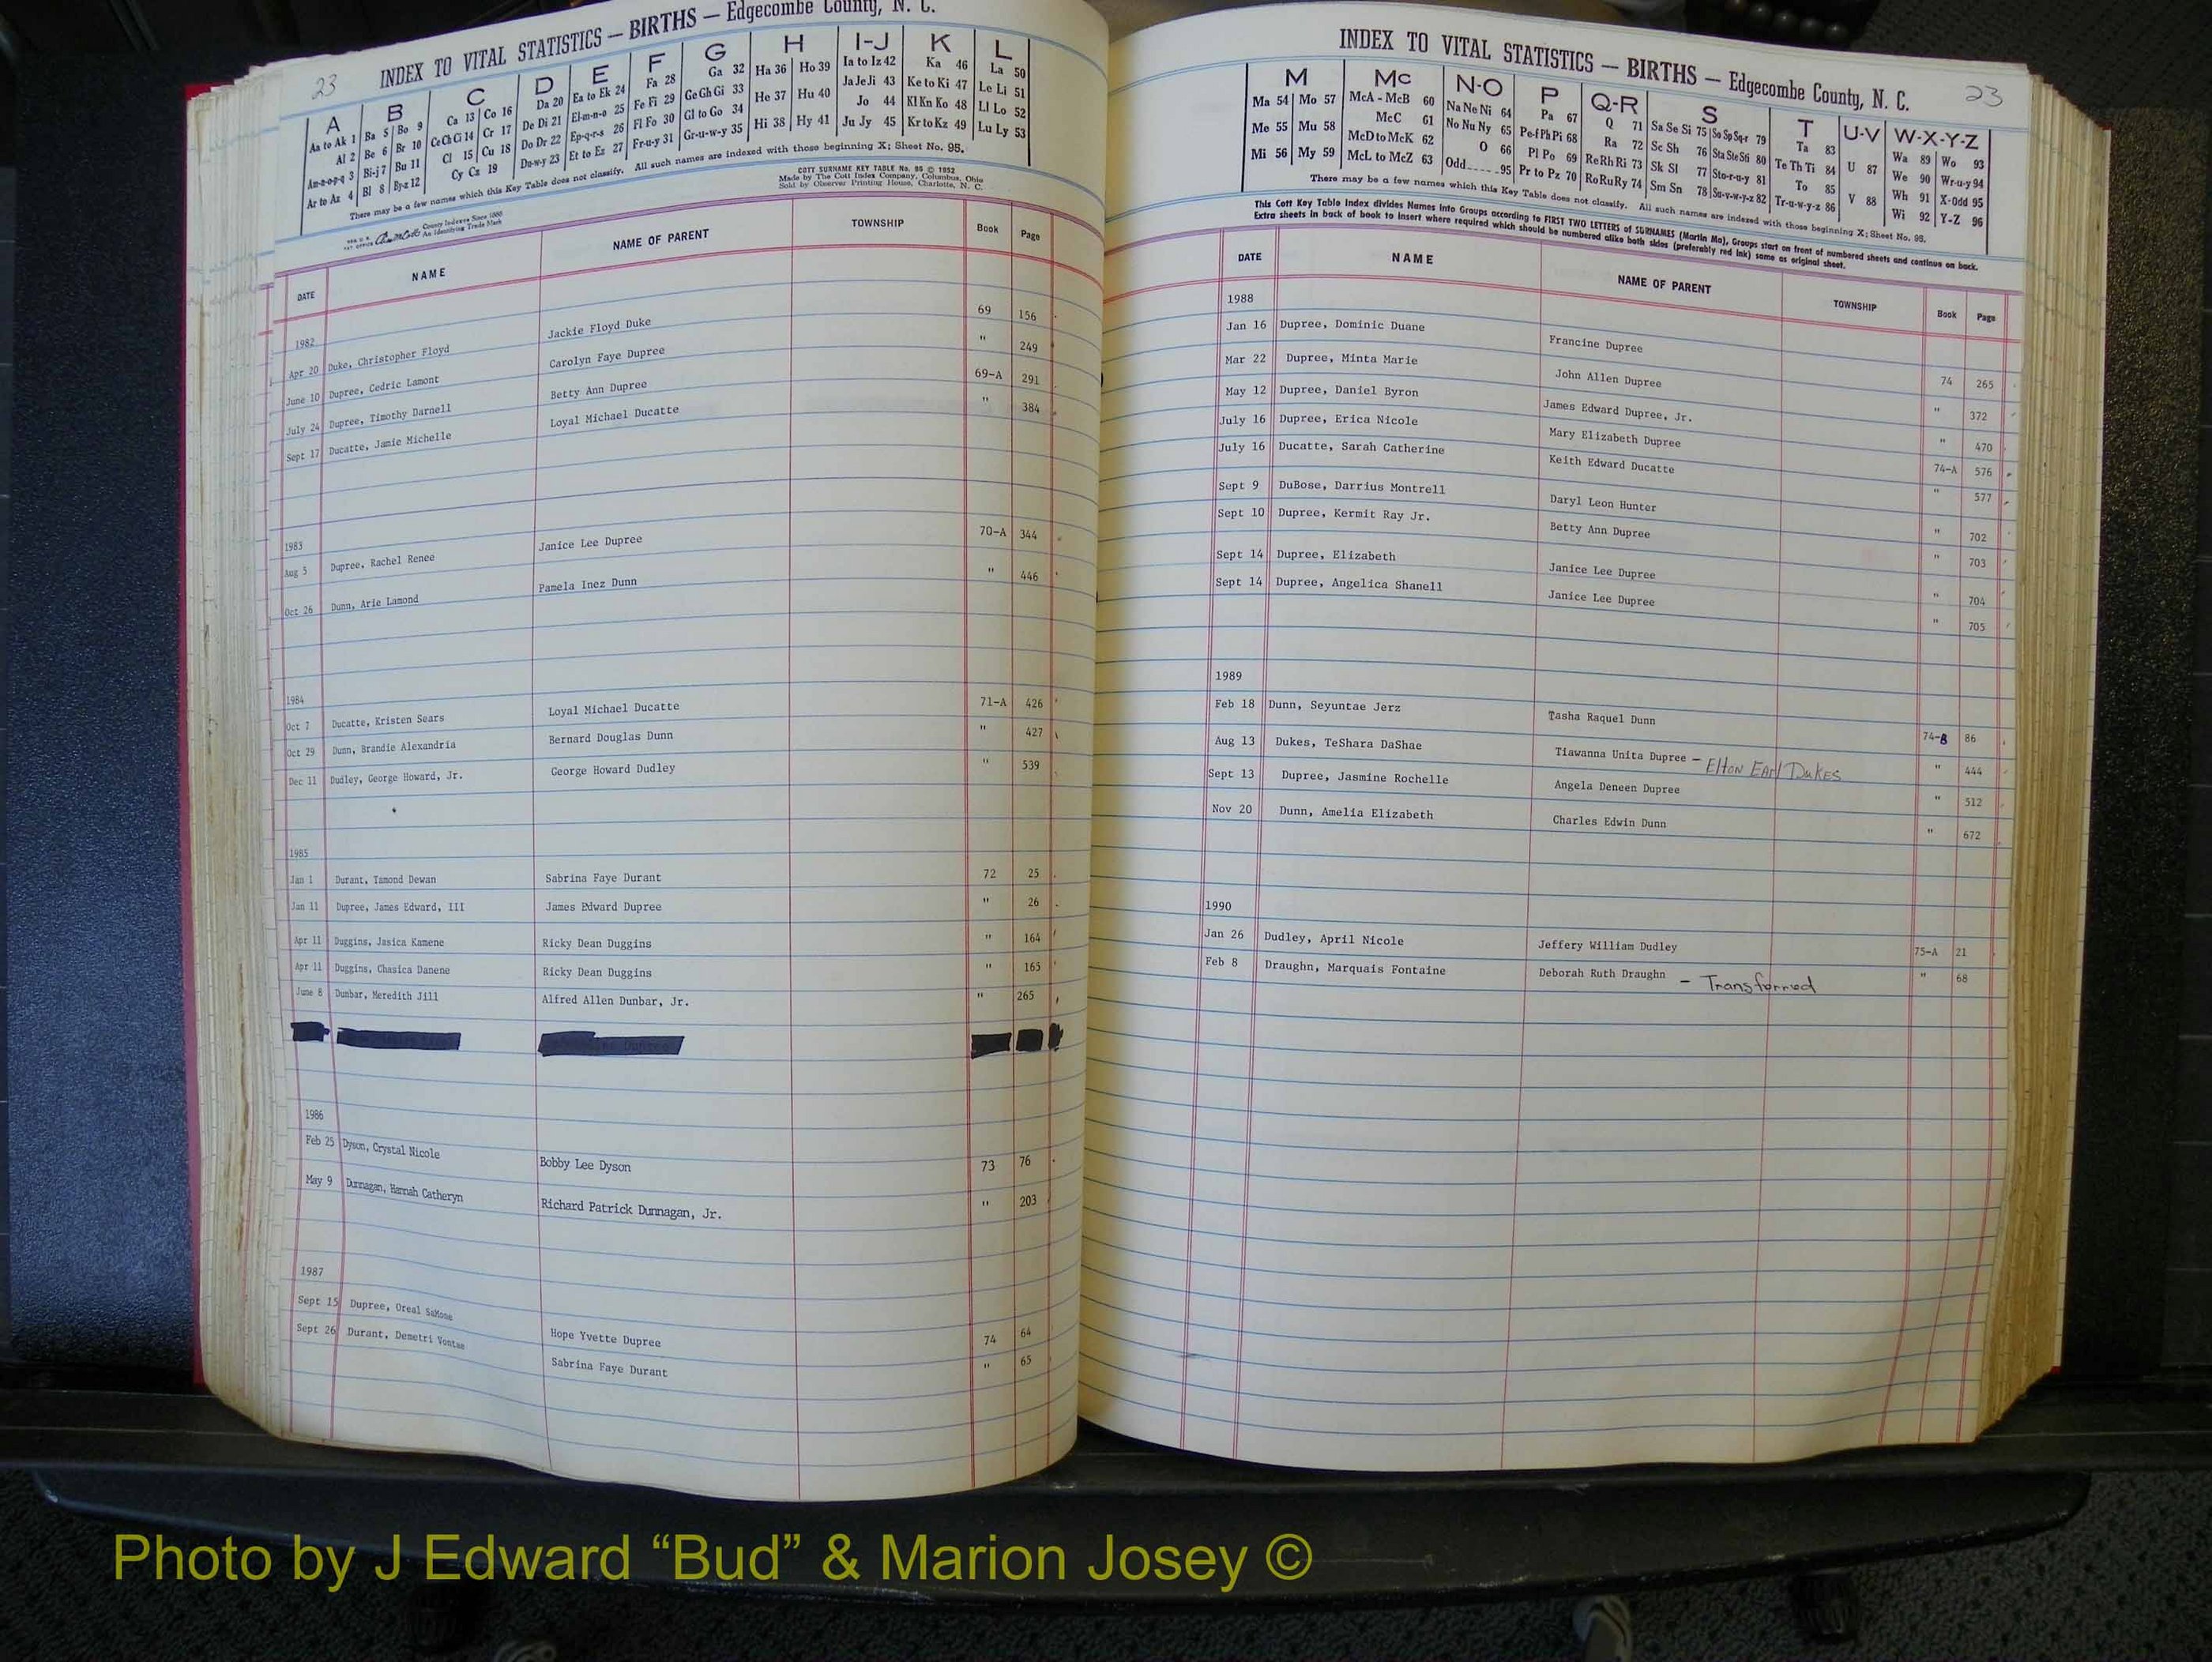 23
INDEX TO VITAL STATISTICS — BIRTHS — Edgecombe County, N. C.
A B C D E F G H I-J K L
Aa to Ak 1 Ba 5 Bo 9 Ca 13 Co 16 Da 20 Ea to Ek 24 Fa 28 Ga 32 Ha 36 Ho 39 Ia to Iz 42 Ka 46 La 50
Al 2 Be 6 Br 10 Ce Ch Ci 14 Cr 17 De Di 21 El-m-n-o 25 Fe Fi 29 Ge Gh Gi 33 He 37 Hu 40 Ja Je Ji 43 Ke to Ki 47 Le Li 51
An-z-o-p-q 3 Bi-j 7 Bu 11 Cl 15 Cu 18 Do Dr 22 Ep-q-r-s 26 Fl Fo 30 Gl to Go 34 Hi 38 Hy 41 Jo 44 Kl Kn Ko 48 Ll Lo 52
Ar to Az 4 Bl 8 By-z 12 Cy Cz 19 Du-w-y 23 Et to Ez 27 Fr-u-y 31 Gr-u-w-y 35 Ju Jy 45 Kr to Kz 49 Lu Ly 53
There may be a few names which this Key Table does not classify. All such names are indexed with those beginning X; Sheet No. 95.
COTT SURNAME KEY TABLE No. 96 © 1952
Made by The Cott Index Company, Columbus, Ohio
Sold by Observer Printing House, Charlotte, N. C.
County Indexes Since 1888
An Identifying Trade Mark
DATE NAME NAME OF PARENT TOWNSHIP Book Page
1982
Apr 20 Duke, Christopher Floyd Jackie Floyd Duke 69 156
June 10 Dupree, Cedric Lamont Carolyn Faye Dupree " 249
July 24 Dupree, Timothy Darnell Betty Ann Dupree 69-A 291
Sept 17 Ducatte, Jamie Michelle Loyal Michael Ducatte " 384
1983
Aug 5 Dupree, Rachel Renee Janice Lee Dupree 70-A 344
Oct 26 Dunn, Arie Lamond Pamela Inez Dunn " 446
1984
Oct 7 Ducatte, Kristen Sears Loyal Michael Ducatte 71-A 426
Oct 29 Dunn, Brandie Alexandria Bernard Douglas Dunn " 427
Dec 11 Dudley, George Howard, Jr. George Howard Dudley " 539
1985
Jan 1 Durant, Tamond Dewan Sabrina Faye Durant 72 25
Jan 11 Dupree, James Edward, III James Edward Dupree " 26
Apr 11 Duggins, Jasica Kamene Ricky Dean Duggins " 164
Apr 11 Duggins, Chasica Danene Ricky Dean Duggins " 165
June 8 Dunbar, Meredith Jill Alfred Allen Dunbar, Jr. " 265
1986
Feb 25 Dyson, Crystal Nicole Bobby Lee Dyson 73 76
May 9 Dunnagan, Hannah Catheryn Richard Patrick Dunnagan, Jr. " 203
1987
Sept 15 Dupree, Oreal SaMone Hope Yvette Dupree 74 64
Sept 26 Durant, Demetri Vontae Sabrina Faye Durant " 65
INDEX TO VITAL STATISTICS — BIRTHS — Edgecombe County, N. C.
23
M Mc N-O P Q-R S T U-V W-X-Y-Z
Ma 54 Mo 57 McA - McB 60 Na Ne Ni 64 Pa 67 Q 71 Sa Se Si 75 So Sp Sq-r 79 Ta 83 U 87 Wa 89 Wo 93
Me 55 Mu 58 McC 61 No Nu Ny 65 Pe-f Ph Pi 68 Ra 72 Sc Sh 76 Sta Ste Sti 80 Te Th Ti 84 V 88 We 90 Wr-u-y 94
Mi 56 My 59 McD to McK 62 O 66 Pl Po 69 Re Rh Ri 73 Sk Sl 77 Sto-r-u-y 81 To 85 Wh 91 X-Odd 95
McL to McZ 63 Odd 95 Pr to Pz 70 Ro Ru Ry 74 Sm Sn 78 Su-v-w-y-z 82 Tr-u-w-y-z 86 Wi 92 Y-Z 96
There may be a few names which this Key Table does not classify. All such names are indexed with those beginning X; Sheet No. 95.
This Cott Key Table Index divides Names into Groups according to FIRST TWO LETTERS of SURNAMES (Martin Ma), Groups start on front of numbered sheets and continue on back.
Extra sheets in back of book to insert where required which should be numbered alike both sides (preferably red ink) same as original sheet.
DATE NAME NAME OF PARENT TOWNSHIP Book Page
1988
Jan 16 Dupree, Dominic Duane Francine Dupree 74 265
Mar 22 Dupree, Minta Marie John Allen Dupree " 372
May 12 Dupree, Daniel Byron James Edward Dupree, Jr. " 470
July 16 Dupree, Erica Nicole Mary Elizabeth Dupree 74-A 576
July 16 Ducatte, Sarah Catherine Keith Edward Ducatte " 577
Sept 9 DuBose, Darrius Montrell Daryl Leon Hunter " 702
Sept 10 Dupree, Kermit Ray Jr. Betty Ann Dupree " 703
Sept 14 Dupree, Elizabeth Janice Lee Dupree " 704
Sept 14 Dupree, Angelica Shanell Janice Lee Dupree " 705
1989
Feb 18 Dunn, Seyuntae Jerz Tasha Raquel Dunn 74-B 86
Aug 13 Dukes, TeShara DaShae Tiawanna Unita Dupree - Elton Earl Dukes " 444
Sept 13 Dupree, Jasmine Rochelle Angela Deneen Dupree " 512
Nov 20 Dunn, Amelia Elizabeth Charles Edwin Dunn " 672
1990
Jan 26 Dudley, April Nicole Jeffery William Dudley 75-A 21
Feb 8 Draughn, Marquais Fontaine Deborah Ruth Draughn - Transferred " 68
Photo by J Edward “Bud” & Marion Josey ©